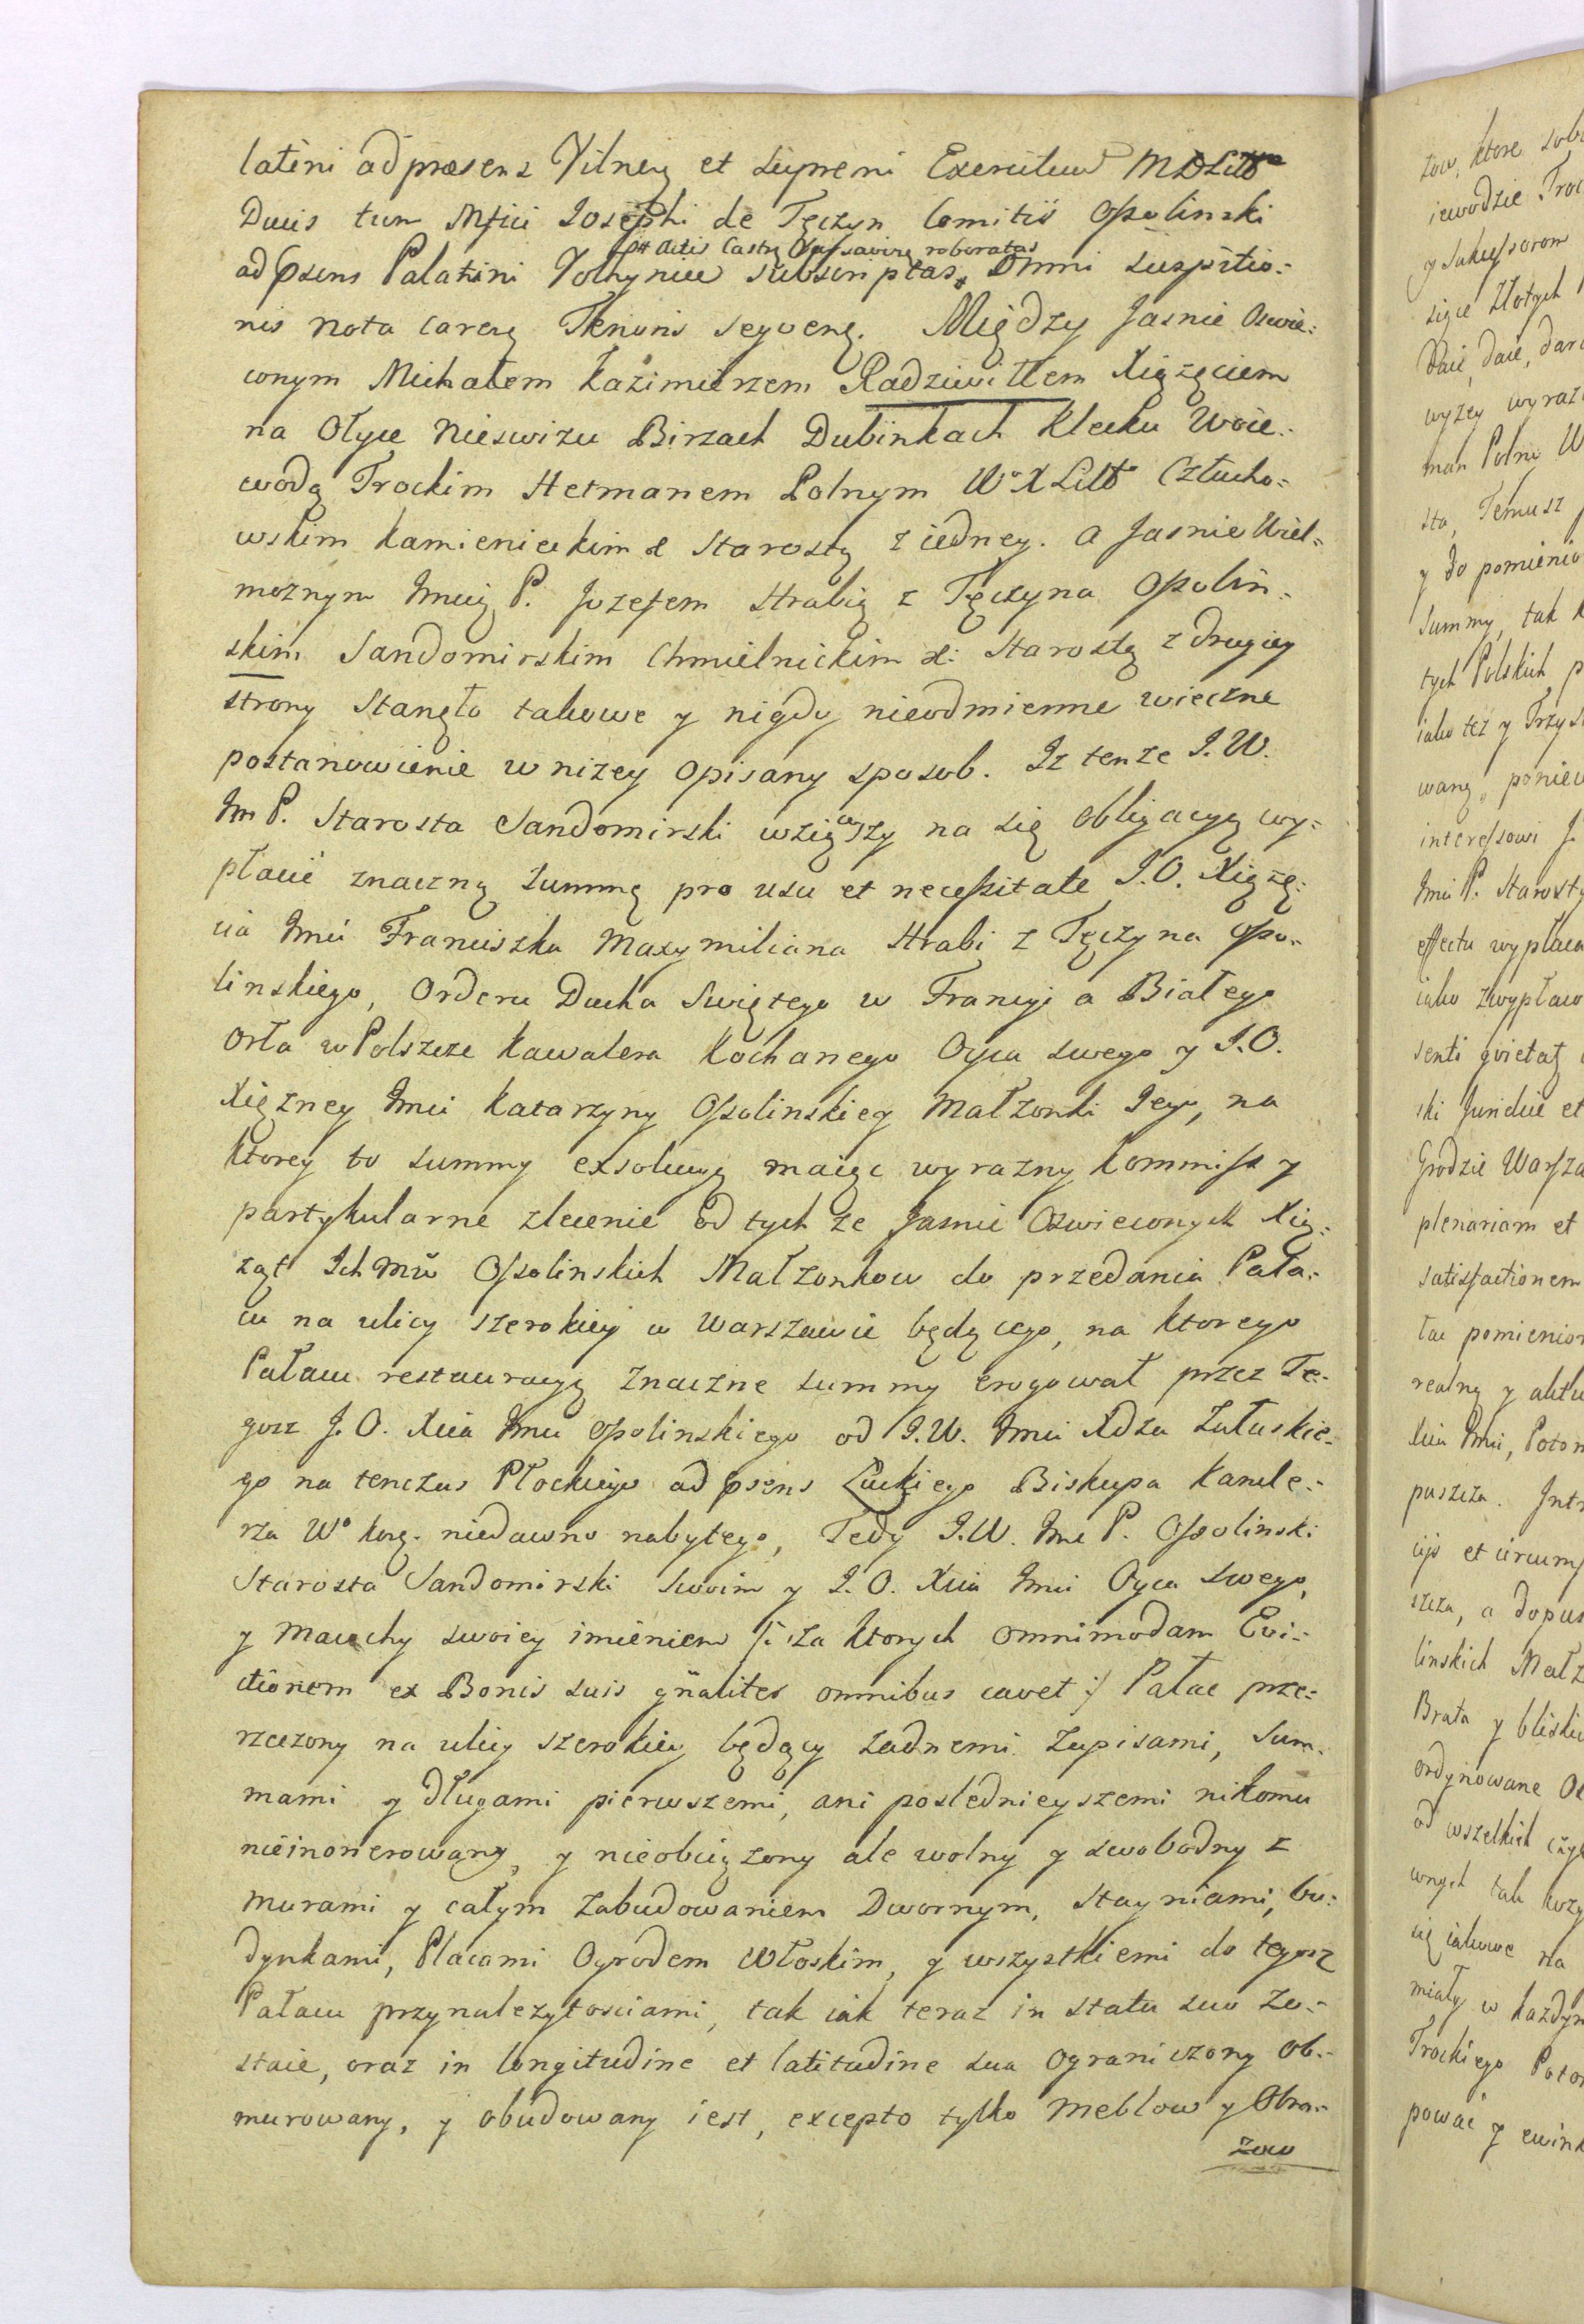 latini ad præsens Vilneñ et supremi Exercituu͂ MDLitt
Ducis tum Mfici Josephi de Tęczyn Comitis Ossolinski
ptt actis Castr Varsavien roboratas
ad psens Palatini Volhyniæ subscriptas, Omni suspitio=
nis nota caren͂ Tenoris seqven͂. Między Jasnie Oswie=
conym Michałem Kazimierzem Radziwiłłem Xiążęciem
na Ołyce Nieswizu Birzach Dubinkach Klecku Woie=
wodą Trockim Hetmanem Polnym Wo X Litto Człucho=
wskim Kamienieckim &c Starostą z iedney. a Jasnie Wiel=
możnym Jmcią P. Jozefem Hrabią z Tęczyna Ossolin=
skim Sandomirskim Chmielnickim &c: Starostą z drugiey
strony Stanęło takowe y nigdy nieodmienne wieczne
postanowienie w niżey opisany sposob. Iz tenze J.W.
Jm P. Starosta Sandomirski wziąwszy na się obligacyą wy=
płacić znaczną summę pro usu et necessitate J.O. Xiążę=
cia Jmci Franciszka Maxymiliana Hrabi z Tęczyna Osso=
linskiego, Orderu Ducha Swiętego w Francyi a Białego
Orła w Polszcze Kawalera Kochanego Oyca swego y J.O.
Xiężney Jmci Katarzyny Ossolinskiey Małzonki Jego, na
ktorey to summy exsolucyą maiąc wyrazny Kommiss y
partykularne zlecenie od tych ze Jasnie Oswieconych Xią=
ząt Ich Mciow Ossolinskich Małzonkow do przedania Pała=
cu na ulicy szerokiey w Warszawie będącego, na ktorego
Pałacu restauracyą znaczne summy erogował przez Te=
goż J.O. Xcia Jmci Ossolinskiego od J.W. Jmci Xdza Załuskie=
go na tenczas Płockiego ad psens Łuckiego Biskupa Kancle=
rza Wo Kor. niedawno nabytego, Tedy J.W. Jmc P. Ossolinski
Starosta Sandomirski swoim y J.O. Xcia Jmci Oyca swego,
y Macochy swoiey imieniem /: za ktorych omnimodam Evi=
ctionem ex Bonis suis gñaliter omnibus cavet :/ Pałac prze=
rzeczony na ulicy szerokiey będący żadnemi Zapisami, Sum=
mami y długami pierwszemi, ani poslednieyszemi nikomu
nieinonerowany, y nieobciążony ale wolny y swobodny z
murami y całym Zabudowaniem Dwornym, Stayniami, bu=
dynkami, Placami Ogrodem Włoskim, y wszystkiemi do tegoż
Pałacu przynalezytosciami, tak iak teraz in statu suo zo=
staie, oraz in longitudine et latitudine sua ograniczony ob=
murowany, y obudowany iest, excepto tylko Meblow y Obra=
zow
zow, ktore sob
iewodzie Troc
y Sukcessorom
siące Złotych
daie, daie, daru
wyzey wyraz
man Polny W
sta, Temusz
y do pomienio
Summy, tak
tych Polskich, p
iako tez y Przys
waną, poniew
interessowi J.
Jmci P. Starosty
effectu wypłaca
iako z wypłaco
senti qvietat
ski Juridice et
Grodzie Warsza
plenariam et
satisfactionem
tac pomienion
realną y aktu
Xcia Jmci, Poto
puszcza. Int
cijs et circum
szcza, a dopus
linskich Małz
Brata y blisk
ordynowane O
od wszelkich czy
wnych tak wzy
cię iakowe na
miały w kazdym
Trockiego Poto
powac y ewin